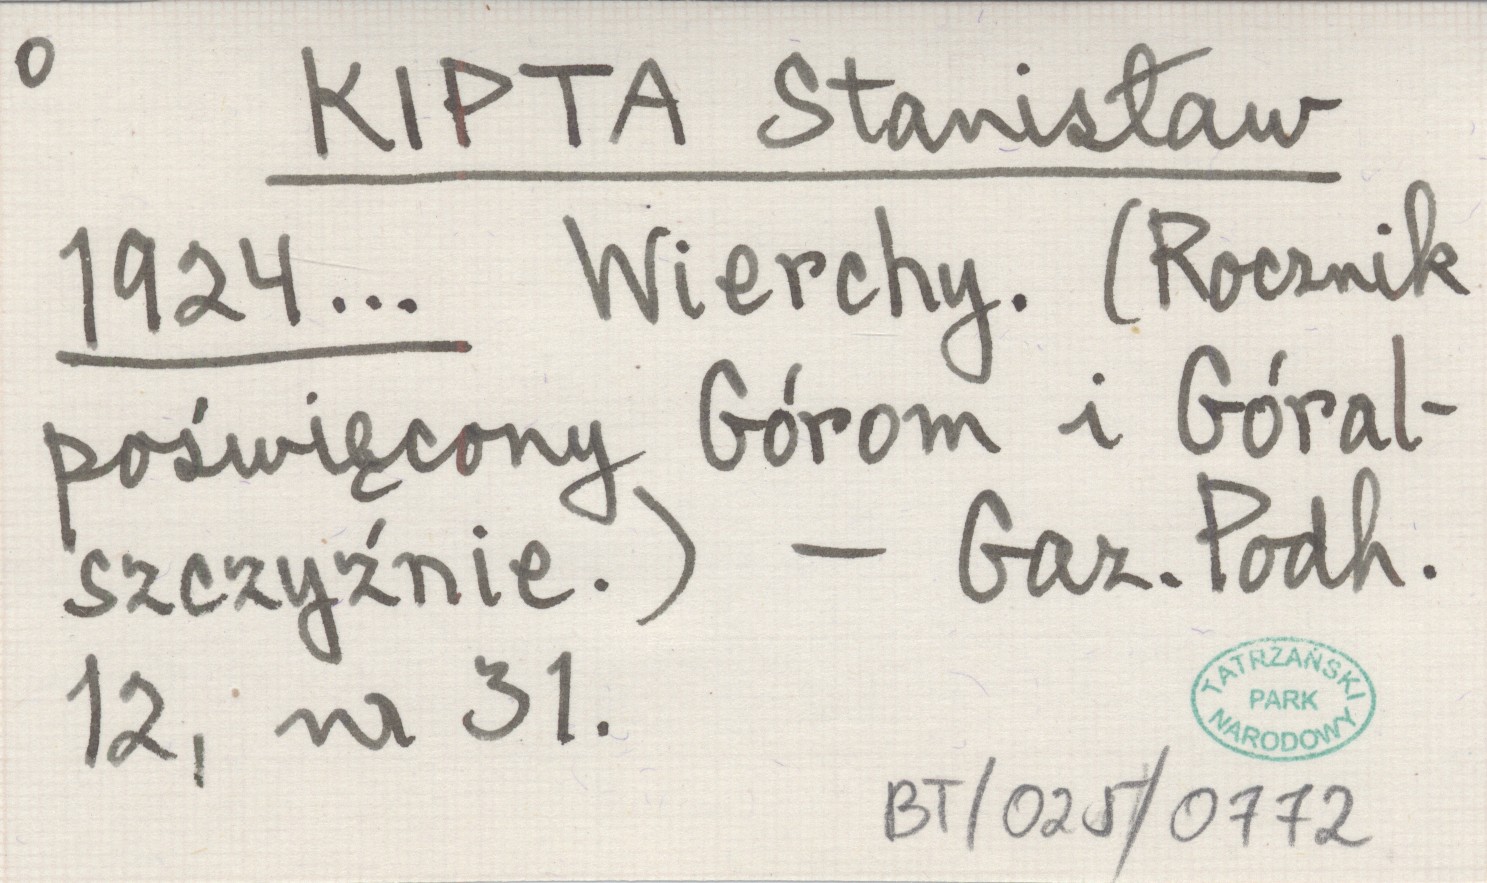 o
KIPTA Stanisław
1924... Wierchy. (Rocznik
poświęcony Górom i Góral-
szczyźnie.) – Gaz. Podh.
12, nr 31.
TATRZAŃSKI
PARK
NARODOWY
BT/025/0772